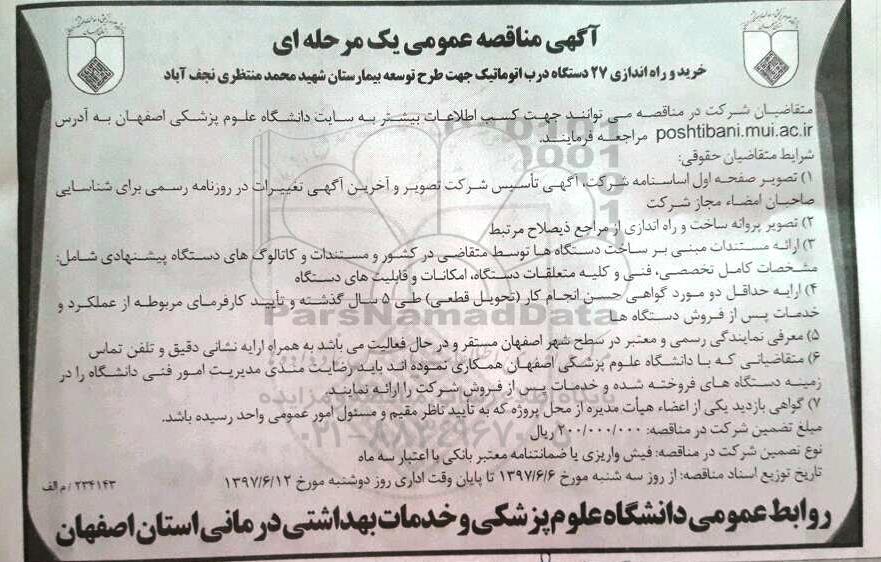 آگهی مناقصه عمومی یک مرحله ای
خرید و راه اندازی ۲۷ دستگاه درب اتوماتیک جهت طرح توسعه بیمارستان شهید محمد منتظری نجف آباد
متقاضیان شرکت در مناقصه می توانند جهت کسب اطلاعات بیشتر به سایت دانشگاه علوم پزشکی اصفهان به آدرس
poshtibani.mui.ac.ir مراجعه فرمایند.
شرایط متقاضیان حقوقی:
۱) تصویر صفحه اول اساسنامه شرکت، آگهی تأسیس شرکت تصویر و آخرین آگهی تغییرات در روزنامه رسمی برای شناسایی
صاحبان امضاء مجاز شرکت
۲) تصویر پروانه ساخت و راه اندازی از مراجع ذیصلاح مرتبط
۳) ارائه مستندات مبنی بر ساخت دستگاه ها توسط متقاضی در کشور و مستندات و کاتالوگ های دستگاه پیشنهادی شامل:
مشخصات کامل تخصصی، فنی و کلیه متعلقات دستگاه، امکانات و قابلیت های دستگاه
۴) ارایه حداقل دو مورد گواهی حسن انجام کار (تحویل قطعی) طی ۵ سال گذشته و تأیید کارفرمای مربوطه از عملکرد و
خدمات پس از فروش دستگاه ها
ParsNamadData
۵) معرفی نمایندگی رسمی و معتبر در سطح شهر اصفهان مستقر و در حال فعالیت می باشد به همراه ارایه نشانی دقیق و تلفن تماس
۶) متقاضیانی که با دانشگاه علوم پزشکی اصفهان همکاری نموده اند باید رضایت مندی مدیریت امور فنی دانشگاه را در
زمینه دستگاه های فروخته شده و خدمات پس از فروش شرکت را ارائه نمایند
۷) گواهی بازدید یکی از اعضاء هیأت مدیره از محل پروژه که به تأیید ناظر مقیم و مسئول امور عمومی واحد رسیده باشد.
مبلغ تضمین شرکت در مناقصه: ۲۰۰/۰۰۰/۰۰۰ ریال
نوع تضمین شرکت در مناقصه: فیش واریزی یا ضمانتنامه معتبر بانکی با اعتبار سه ماه
تاریخ توزیع اسناد مناقصه: از روز سه شنبه مورخ ۱۳۹۷/۶/۶ تا پایان وقت اداری روز دوشنبه مورخ ۱۳۹۷/۶/۱۲
۲۳۴۱۴۳ / م الف
روابط عمومی دانشگاه علوم پزشکی و خدمات بهداشتی درمانی استان اصفهان